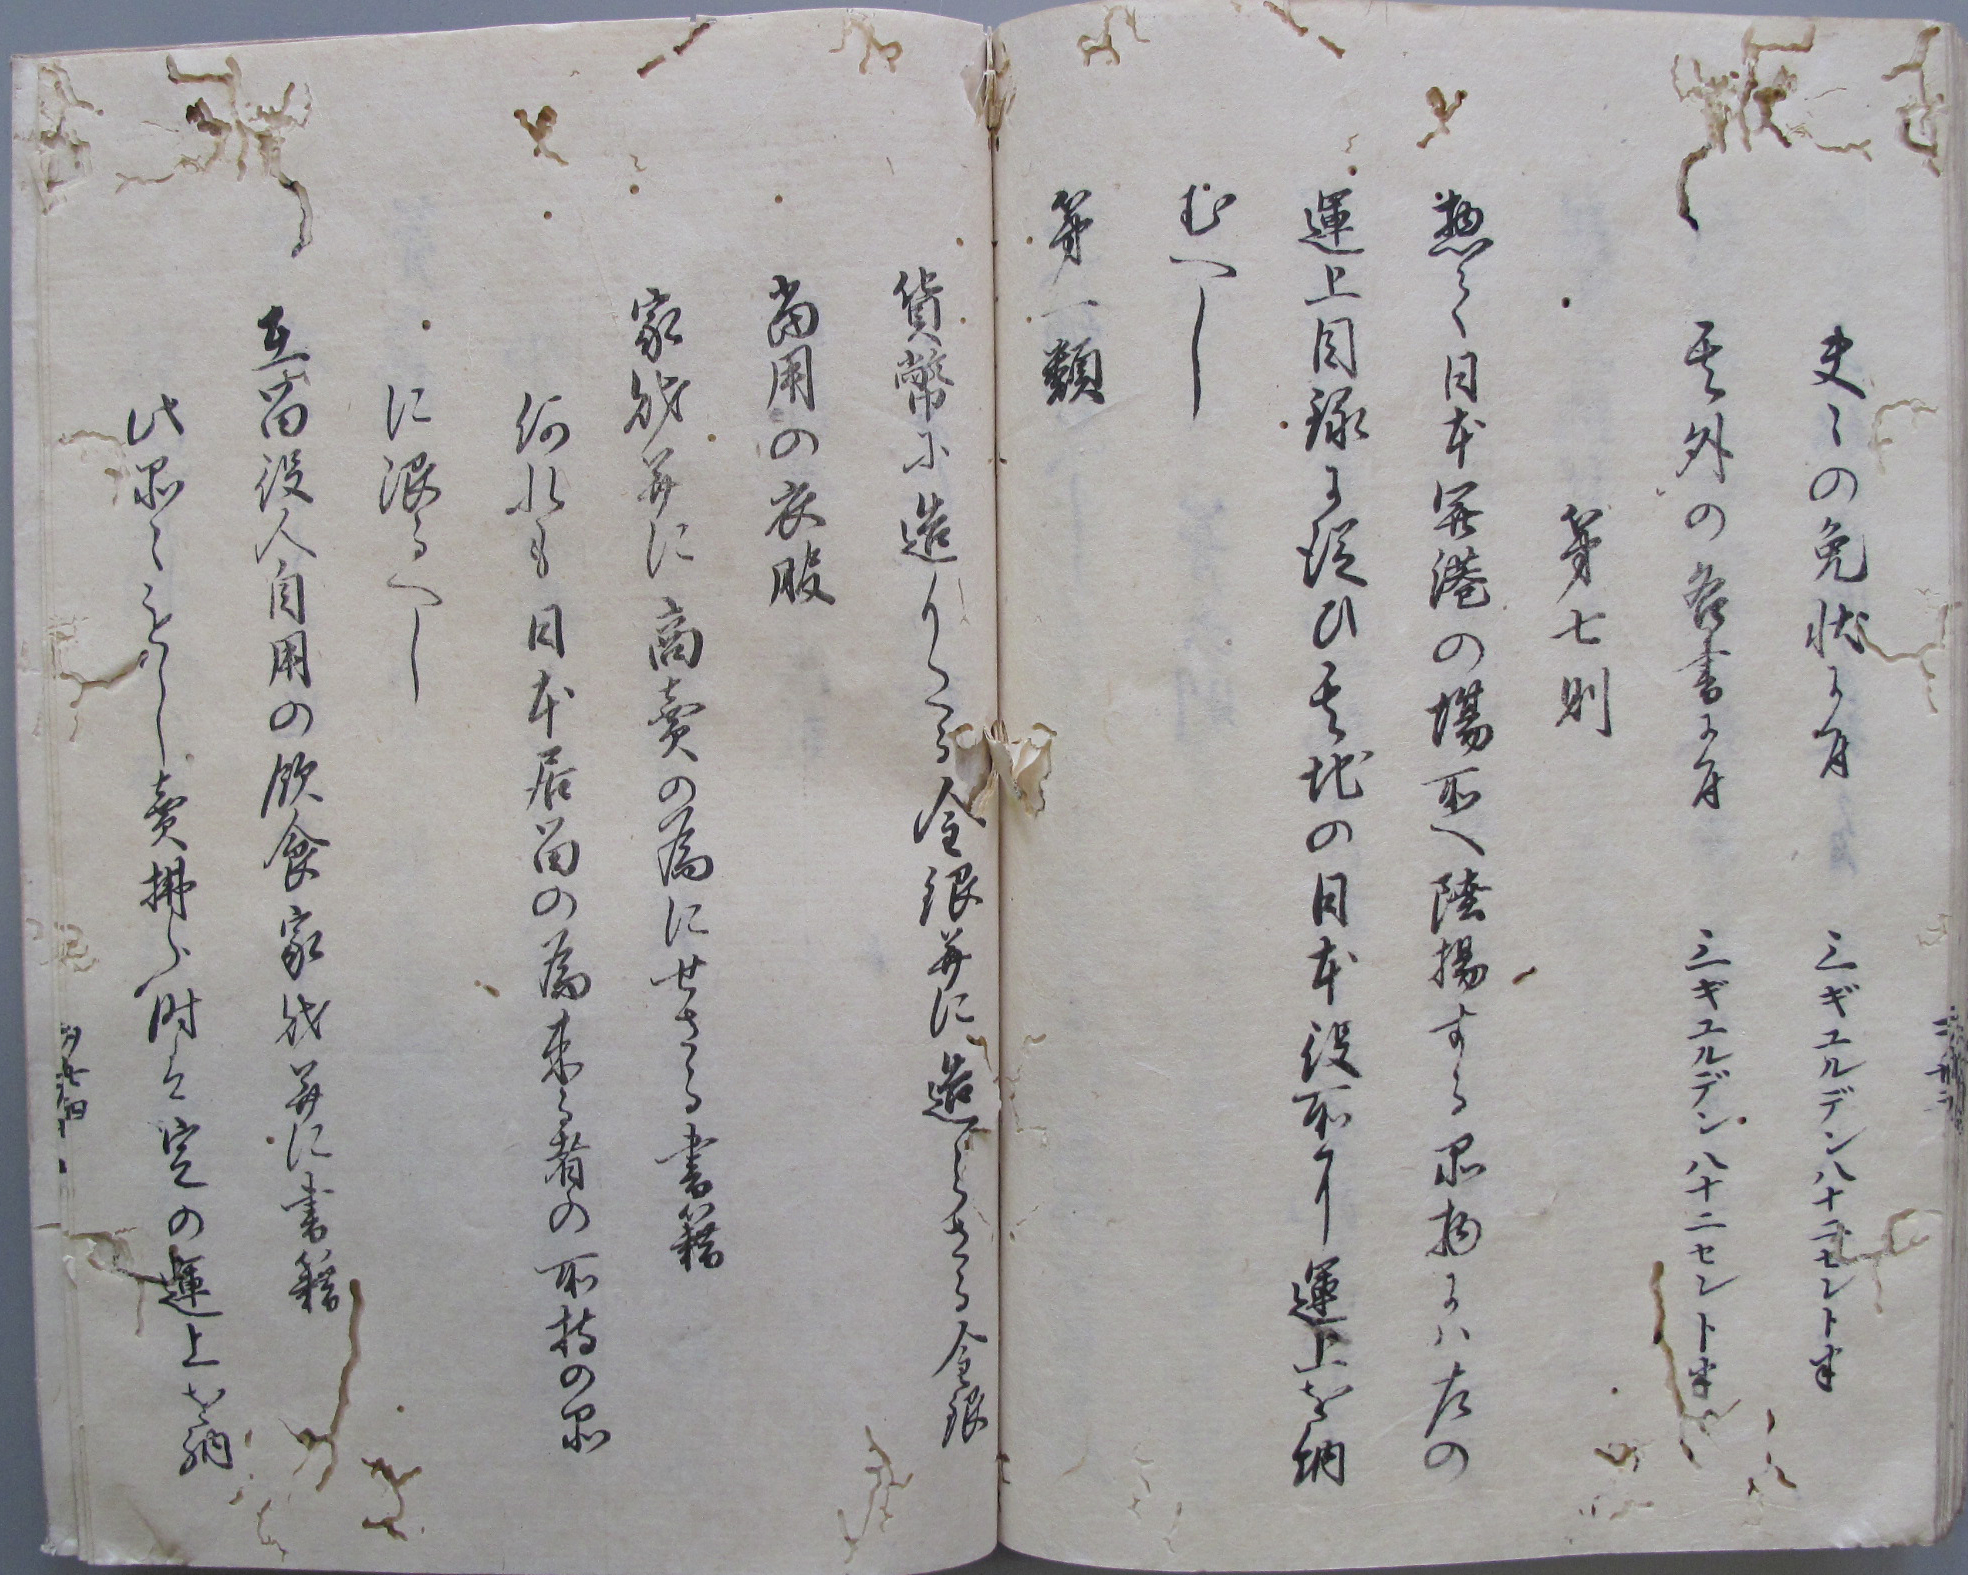 夫々の免状に付　三ギユルデン八十二セント半
其外の各書に付　三ギユルデン八十二セント半
第七則
惣て日本開港の場所へ陸揚する品物には左の
運上目録に従ひ其地の日本役所に運上を納
むへし
第一類
貨幣に造りたる金銀并に造らさる金銀
当用の衣服
家財并に商売の為にせさる書籍
何れも日本居留の為来る者の所持の品
に限るへし
在留役人自用の飲食家財并に書籍
此品々もし売払ふ時は定の運上を納